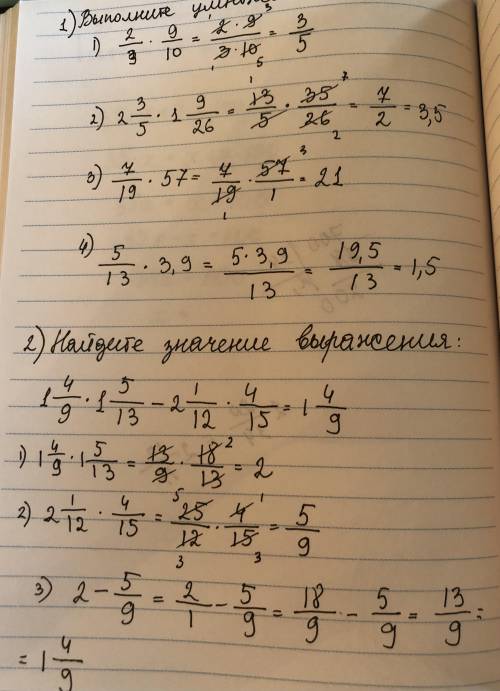 1) Выполните
1) 2/3 · 9/10 = 2·9/3·10 = 3/5
2) 2 3/5 · 1 9/26 = 13/5 · 35/26 = 7/2 = 3,5
3) 7/19 · 57 = 7/19 · 57/1 = 21
4) 5/13 · 3,9 = 5·3,9/13 = 19,5/13 = 1,5
2) Найдите значение выражения:
1 4/9 · 1 5/13 - 2 1/12 · 4/15 = 1 4/9
1) 1 4/9 · 1 5/13 = 13/9 · 18/13 = 2
2) 2 1/12 · 4/15 = 25/12 · 4/15 = 5/9
3) 2 - 5/9 = 2/1 - 5/9 = 18/9 - 5/9 = 13/9 =
= 1 4/9